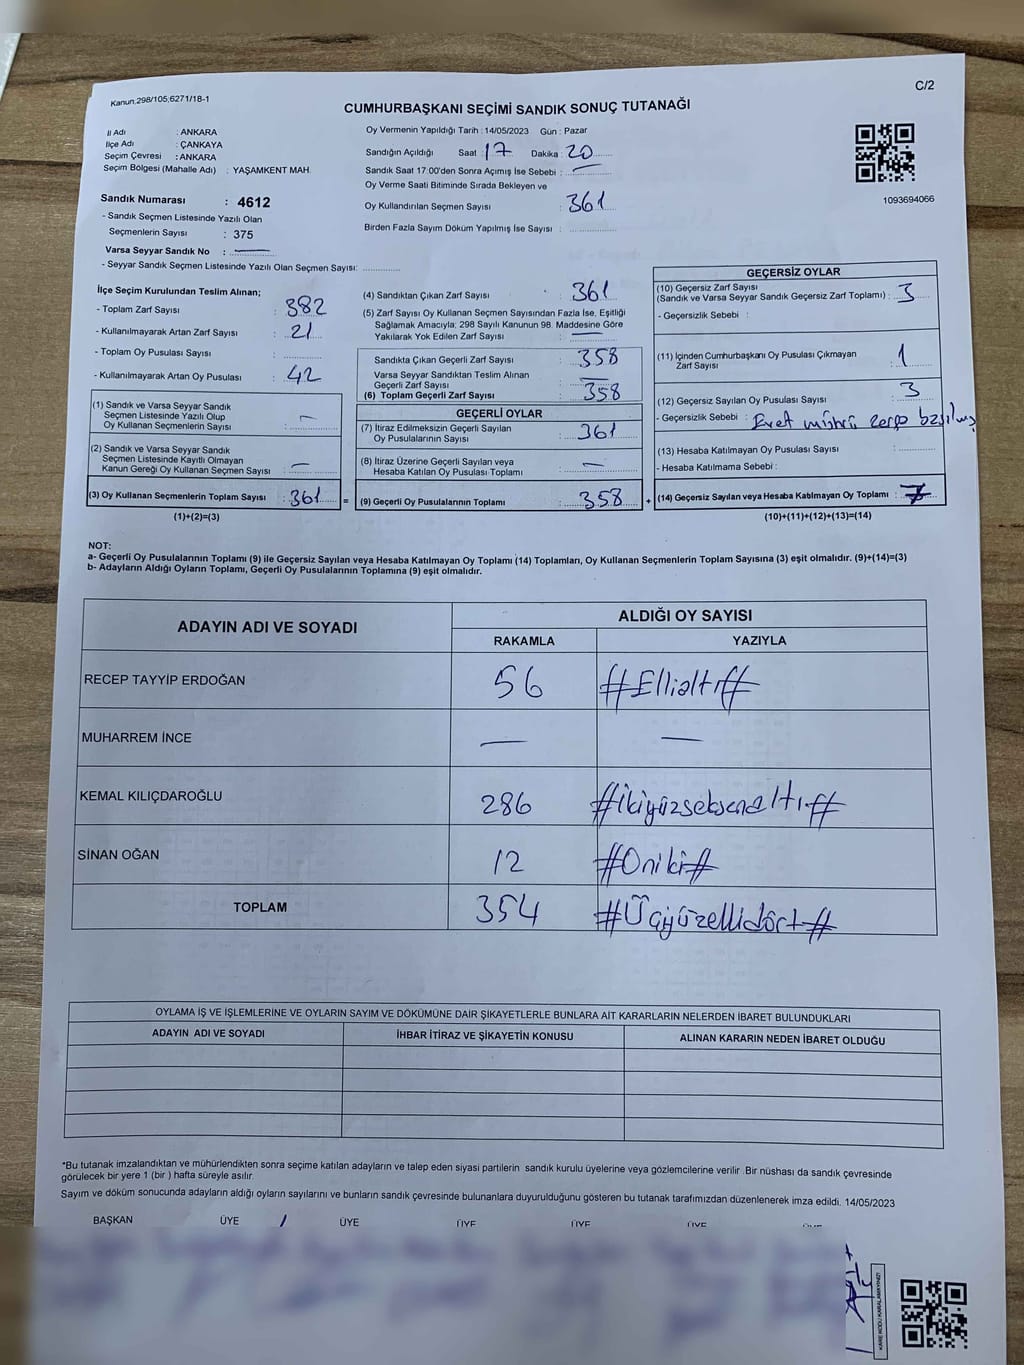 Kanun.298/105;6271/18-1
C/2
CUMHURBAŞKANI SEÇİMİ SANDIK SONUÇ TUTANAĞI
İl Adı : ANKARA
İlçe Adı : ÇANKAYA
Seçim Çevresi : ANKARA
Seçim Bölgesi (Mahalle Adı) : YAŞAMKENT MAH.
Sandık Numarası : 4612
- Sandık Seçmen Listesinde Yazılı Olan
Seçmenlerin Sayısı : 375
Varsa Seyyar Sandık No :
- Seyyar Sandık Seçmen Listesinde Yazılı Olan Seçmen Sayısı:
Oy Vermenin Yapıldığı Tarih : 14/05/2023 Gün : Pazar
Sandığın Açıldığı Saat : 17 Dakika : 20
Sandık Saat 17:00'den Sonra Açımış İse Sebebi :
Oy Verme Saati Bitiminde Sırada Bekleyen ve
Oy Kullandırılan Seçmen Sayısı : 361
Birden Fazla Sayım Döküm Yapılmış İse Sayısı :
1093694066
İlçe Seçim Kurulundan Teslim Alınan;
- Toplam Zarf Sayısı : 382
- Kullanılmayarak Artan Zarf Sayısı : 21
- Toplam Oy Pusulası Sayısı :
- Kullanılmayarak Artan Oy Pusulası : 42
(1) Sandık ve Varsa Seyyar Sandık
Seçmen Listesinde Yazılı Olup
Oy Kullanan Seçmenlerin Sayısı : —
(2) Sandık ve Varsa Seyyar Sandık
Seçmen Listesinde Kayıtlı Olmayan
Kanun Gereği Oy Kullanan Seçmen Sayısı : —
(3) Oy Kullanan Seçmenlerin Toplam Sayısı : 361 =
(1)+(2)=(3)
(4) Sandıktan Çıkan Zarf Sayısı : 361
(5) Zarf Sayısı Oy Kullanan Seçmen Sayısından Fazla İse, Eşitliği
Sağlamak Amacıyla; 298 Sayılı Kanunun 98. Maddesine Göre
Yakılarak Yok Edilen Zarf Sayısı : —
Sandıkta Çıkan Geçerli Zarf Sayısı : 358
Varsa Seyyar Sandıktan Teslim Alınan
Geçerli Zarf Sayısı : —
(6) Toplam Geçerli Zarf Sayısı : 358
GEÇERLİ OYLAR
(7) İtiraz Edilmeksizin Geçerli Sayılan
Oy Pusulalarının Sayısı : 361
(8) İtiraz Üzerine Geçerli Sayılan veya
Hesaba Katılan Oy Pusulası Toplamı : —
(9) Geçerli Oy Pusulalarının Toplamı : 358 +
GEÇERSİZ OYLAR
(10) Geçersiz Zarf Sayısı
(Sandık ve Varsa Seyyar Sandık Geçersiz Zarf Toplamı) : 3
- Geçersizlik Sebebi :
(11) İçinden Cumhurbaşkanı Oy Pusulası Çıkmayan
Zarf Sayısı : 1
(12) Geçersiz Sayılan Oy Pusulası Sayısı : 3
- Geçersizlik Sebebi : Evet mührü zarfa basılmış
(13) Hesaba Katılmayan Oy Pusulası Sayısı :
- Hesaba Katılmama Sebebi :
(14) Geçersiz Sayılan veya Hesaba Katılmayan Oy Toplamı : 7
(10)+(11)+(12)+(13)=(14)
NOT:
a- Geçerli Oy Pusulalarının Toplamı (9) ile Geçersiz Sayılan veya Hesaba Katılmayan Oy Toplamı (14) Toplamları, Oy Kullanan Seçmenlerin Toplam Sayısına (3) eşit olmalıdır. (9)+(14)=(3)
b- Adayların Aldığı Oyların Toplamı, Geçerli Oy Pusulalarının Toplamına (9) eşit olmalıdır.
ADAYIN ADI VE SOYADI
ALDIĞI OY SAYISI
RAKAMLA YAZIYLA
RECEP TAYYİP ERDOĞAN 56 #Ellialtı#
MUHARREM İNCE — —
KEMAL KILIÇDAROĞLU 286 #ikiyüzseksenaltı#
SİNAN OĞAN 12 #Oniki#
TOPLAM 354 #Üçyüzellidört#
OYLAMA İŞ VE İŞLEMLERİNE VE OYLARIN SAYIM VE DÖKÜMÜNE DAİR ŞİKAYETLERLE BUNLARA AİT KARARLARIN NELERDEN İBARET BULUNDUKLARI
ADAYIN ADI VE SOYADI İHBAR İTİRAZ VE ŞİKAYETİN KONUSU ALINAN KARARIN NEDEN İBARET OLDUĞU
*Bu tutanak imzalandıktan ve mühürlendikten sonra seçime katılan adayların ve talep eden siyasi partilerin sandık kurulu üyelerine veya gözlemcilerine verilir .Bir nüshası da sandık çevresinde
görülecek bir yere 1 (bir ) hafta süreyle asılır.
Sayım ve döküm sonucunda adayların aldığı oyların sayılarını ve bunların sandık çevresinde bulunanlara duyurulduğunu gösteren bu tutanak tarafımızdan düzenlenerek imza edildi. 14/05/2023
BAŞKAN ÜYE ÜYE ÜYE ÜYE ÜYE ÜYE
KARE KODU KARALAMAYINIZ!